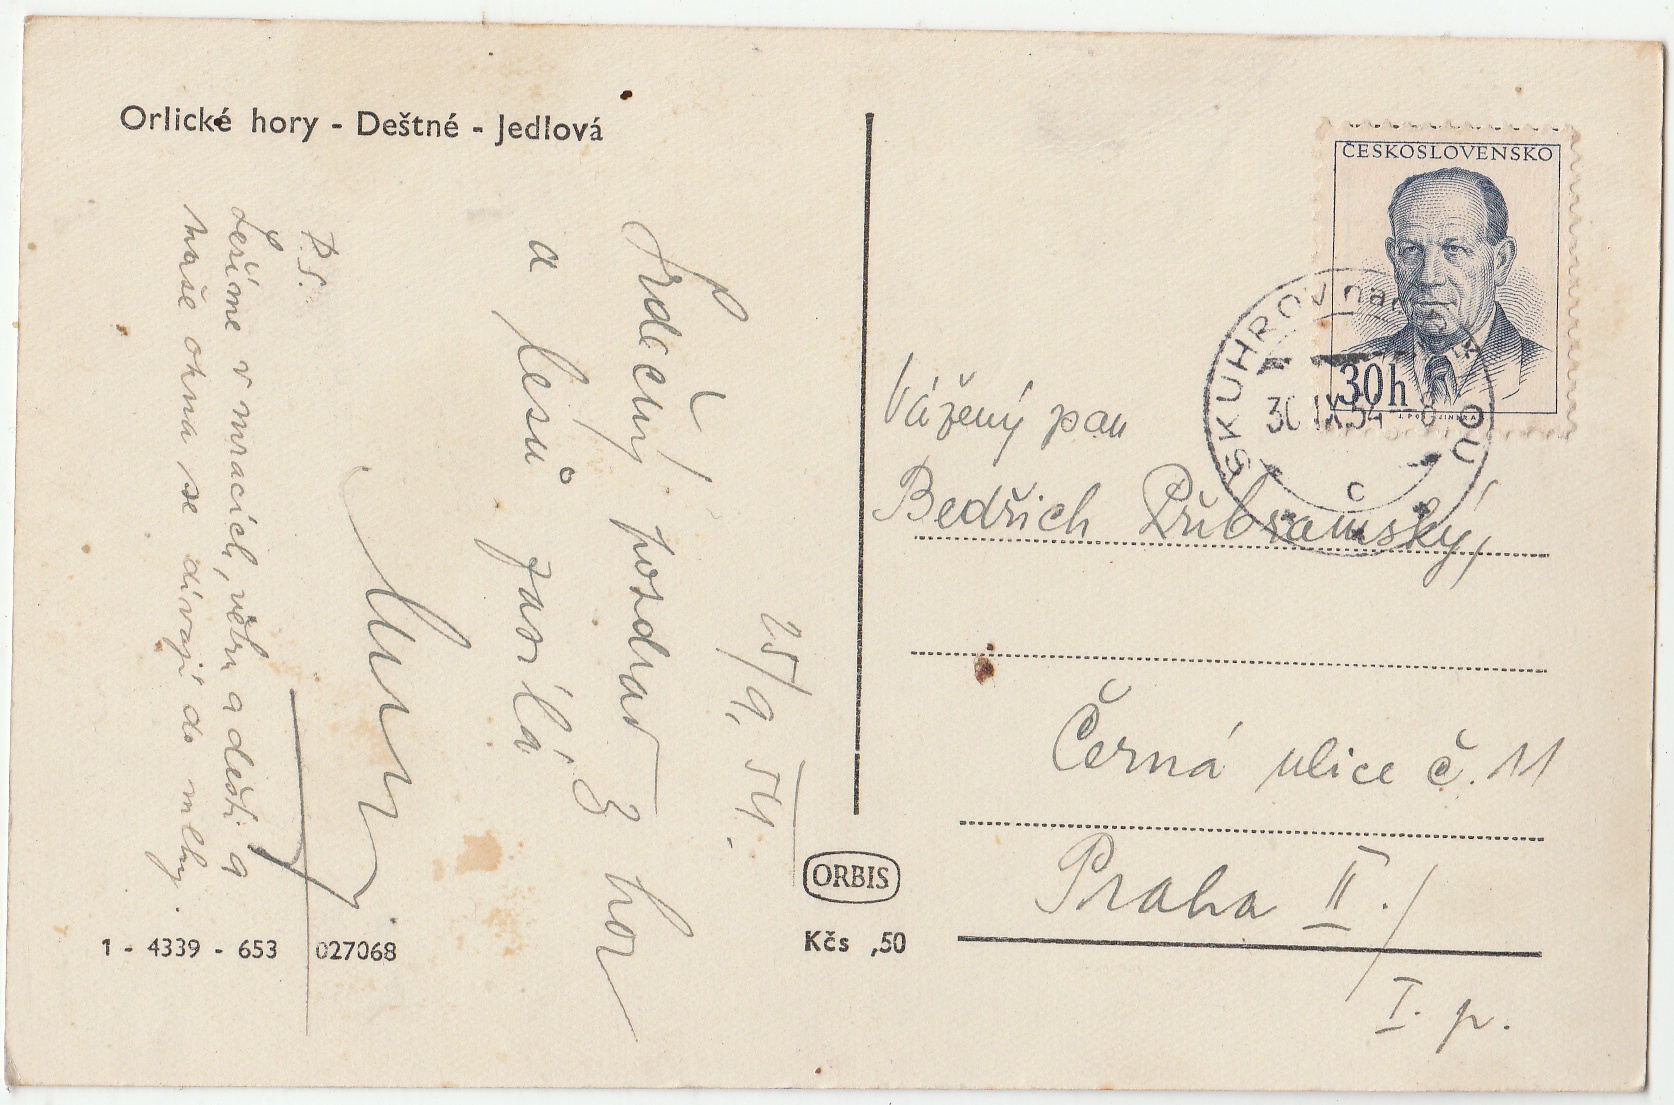 Orlické hory - Deštné - Jedlová
25/9. 54.
Srdečný pozdrav z hor
a lesů zasílá
P.S.
Ležíme v mracích, větru a dešti a
naše okna se dívají do mlhy.
1 - 4339 - 653 027068
ORBIS
Kčs ,50
ČESKOSLOVENSKO
30h
SKUHROV nad
30.IX.54 -8
C
Vážený pan
Bedřich Přibramský,
Černá ulice č. 11
Praha II./
I. p.